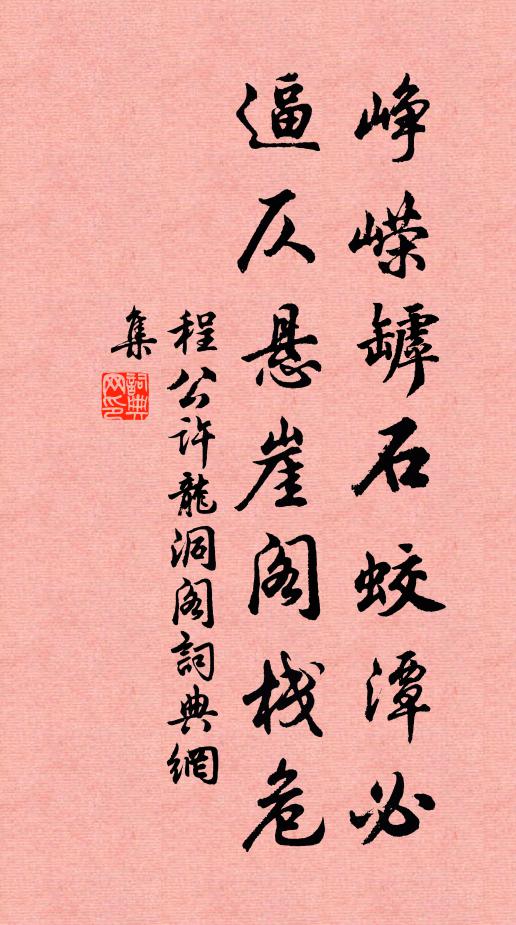 峥嵘罅石蛟潭必
逼仄悬崖阁栈危
程公许龍洞阁詞典網
集
詞典
网印